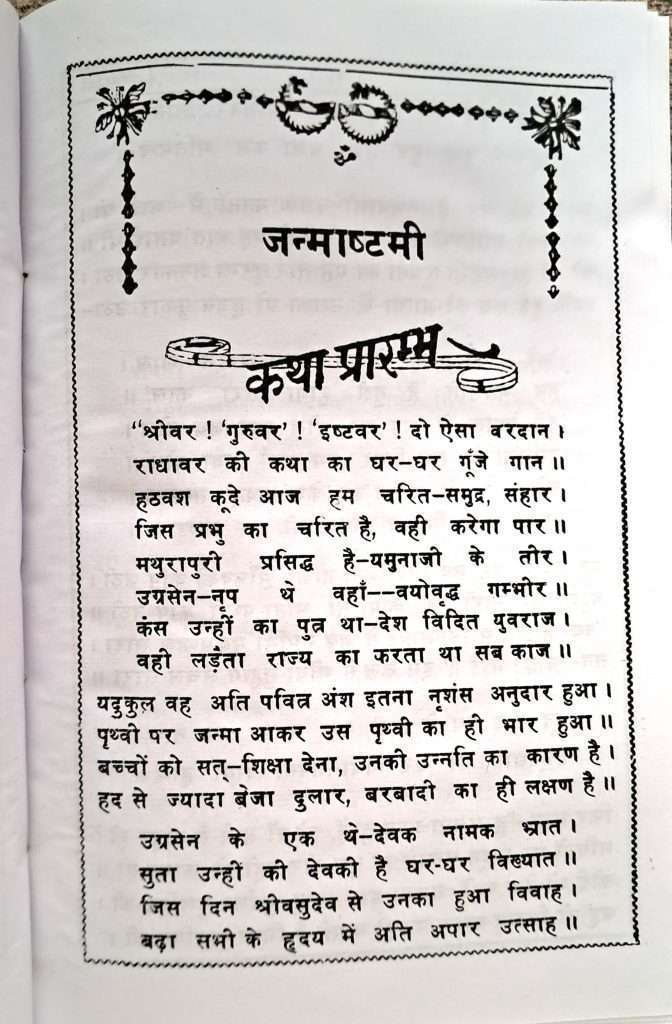 जन्माष्टमी
कथा प्रारम्भ
“श्रीवर ! ‘गुरुवर’ ! ‘इष्टवर’ ! दो ऐसा वरदान ।
राधावर की कथा का घर–घर गूँजे गान ॥
हठवश कूदे आज हम चरित–समुद्र, संहार ।
जिस प्रभु का चरित है, वही करेगा पार ॥
मथुरापुरी प्रसिद्ध है–यमुनाजी के तीर ।
उग्रसेन–नृप थे वहाँ--वयोवृद्ध गम्भीर ॥
कंस उन्हीं का पुत्र था–देश विदित युवराज ।
वही लड़ैता राज्य का करता था सब काज ॥
यदुकुल वह अति पवित्र अंश इतना नृशंस अनुदार हुआ ।
पृथ्वी पर जन्मा आकर उस पृथ्वी का ही भार हुआ ॥
बच्चों को सत्–शिक्षा देना, उनकी उन्नति का कारण है ।
हद से ज्यादा बेजा दुलार, बरबादी का ही लक्षण है ॥
उग्रसेन के एक थे–देवक नामक भ्रात ।
सुता उन्हीं की देवकी है घर-घर विख्यात ॥
जिस दिन श्रीवसुदेव से उनका हुआ विवाह ।
बढ़ा सभी के हृदय में अति अपार उत्साह ॥